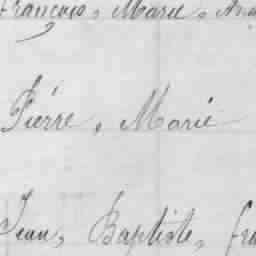 François, Marie,
Pierre, Marie
Jean, Baptiste,